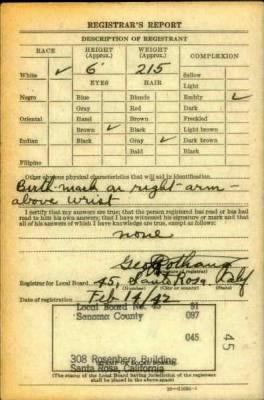 REGISTRAR'S REPORT
DESCRIPTION OF REGISTRANT
RACE HEIGHT (Approx.) WEIGHT (Approx.) COMPLEXION
White ✓ 6' 215 Sallow
EYES HAIR Light
Negro Blue Blonde Ruddy ✓
Gray Red Dark
Oriental Hazel Brown Freckled
Brown ✓ Black Light brown
Indian Black Gray ✓ Dark brown
Bald Black
Filipino
Other obvious physical characteristics that will aid in identification
Birth mark on right arm -
above wrist
I certify that my answers are true; that the person registered has read or has had
read to him his own answers; that I have witnessed his signature or mark and that
all of his answers of which I have knowledge are true, except as follows:
none
Geo
(Signature of registrar)
Registrar for Local Board 45, Santa Rosa, Calif
(Number) (City or county) (State)
Date of registration Feb 14/42
Local Board No. 91
Sonoma County 097
045
308 Rosenberg Building
Santa Rosa, California
45
(The stamp of the Local Board having jurisdiction of the registrant
shall be placed in the above space)